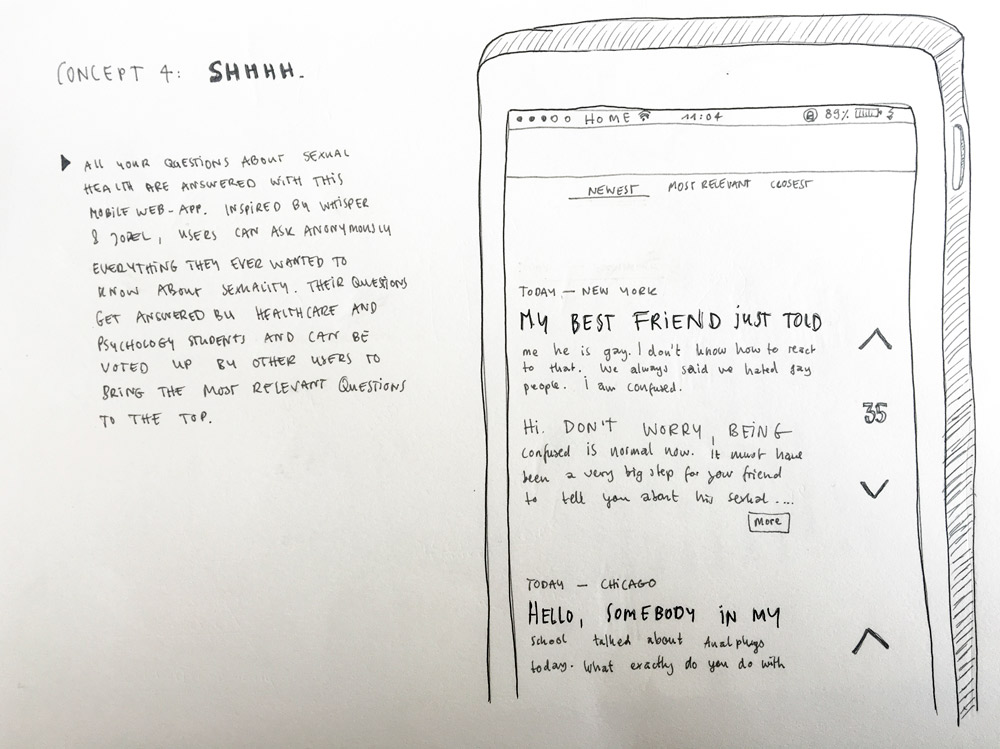 CONCEPT 4: SHHHH.
ALL YOUR QUESTIONS ABOUT SEXUAL
HEALTH ARE ANSWERED WITH THIS
MOBILE WEB-APP. INSPIRED BY WHISPER
& JODEL, USERS CAN ASK ANONYMOUSLY
EVERYTHING THEY EVER WANTED TO
KNOW ABOUT SEXUALITY. THEIR QUESTIONS
GET ANSWERED BY HEALTHCARE AND
PSYCHOLOGY STUDENTS AND CAN BE
VOTED UP BY OTHER USERS TO
BRING THE MOST RELEVANT QUESTIONS
TO THE TOP.
HOME 11:04 89%
NEWEST MOST RELEVANT CLOSEST
TODAY — NEW YORK
MY BEST FRIEND JUST TOLD
me he is gay. I don't know how to react
to that. We always said we hated gay
people. I am confused.
35
Hi. DON'T WORRY, BEING
confused is normal now. It must have
been a very big step for your friend
to tell you about his sexual ....
More
TODAY — CHICAGO
HELLO, SOMEBODY IN MY
school talked about Analplugs
today. What exactly do you do with